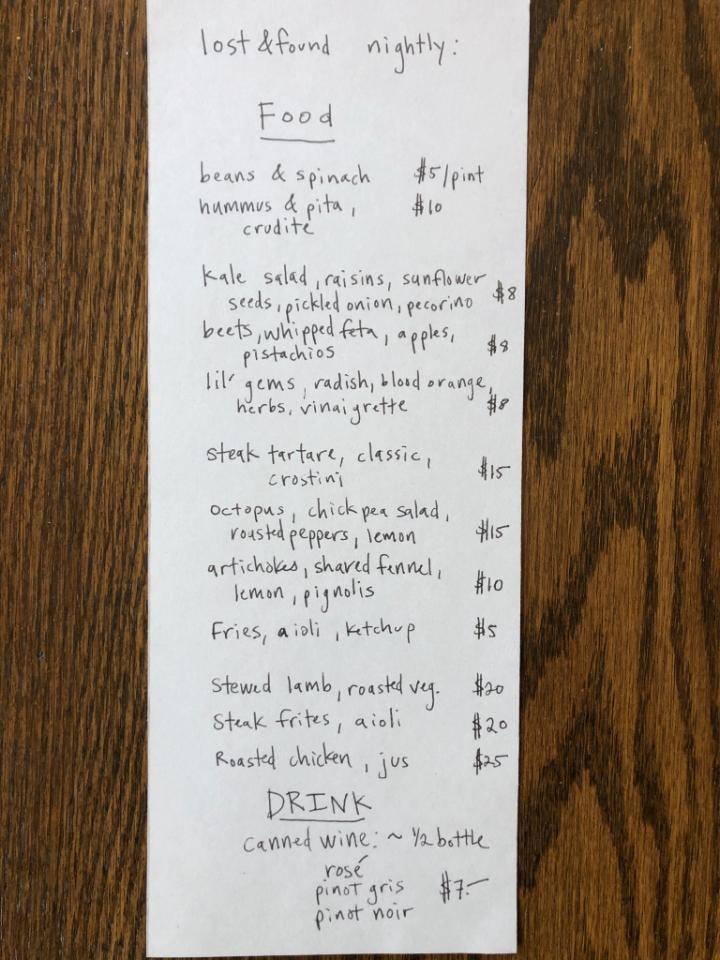 lost & found nightly:
Food
beans & spinach $5/pint
hummus & pita, $10
crudite
kale salad, raisins, sunflower
seeds, pickled onion, pecorino $8
beets, whipped feta, apples,
pistachios $8
lil' gems, radish, blood orange,
herbs, vinaigrette $8
steak tartare, classic,
crostini $15
octopus, chick pea salad,
roasted peppers, lemon $15
artichokes, shared fennel,
lemon, pignolis $10
Fries, aioli, ketchup $5
Stewed lamb, roasted veg. $20
Steak frites, aioli $20
Roasted chicken, jus $25
DRINK
canned wine: ~ 1/2 bottle
rosé
pinot gris $7.-
pinot noir